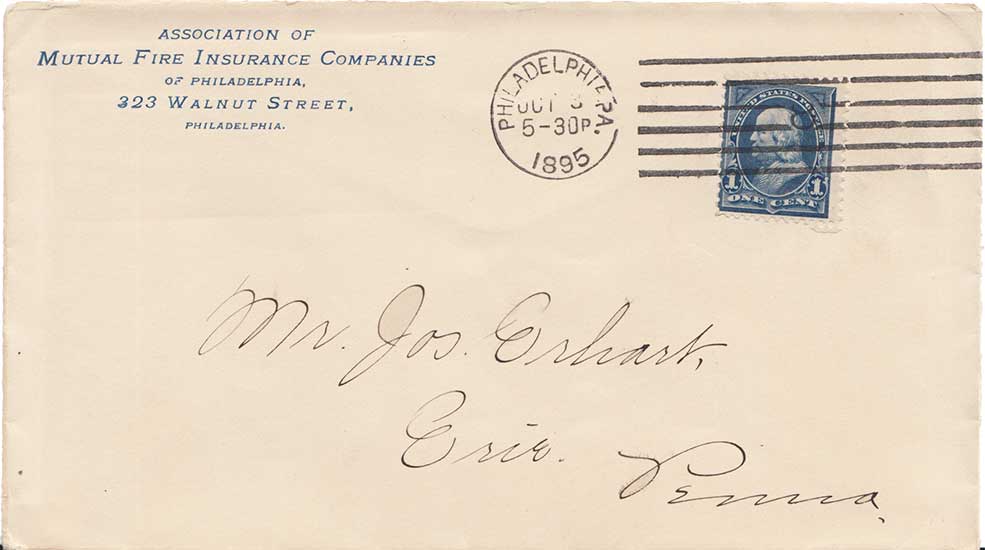 ASSOCIATION OF
MUTUAL FIRE INSURANCE COMPANIES
OF PHILADELPHIA,
323 WALNUT STREET,
PHILADELPHIA.
PHILADELPHIA, PA.
OCT 3
5-30P.
1895
UNITED STATES POSTAGE
1 1
ONE CENT
Mr. Jos. Erhart,
Erie. Penna.